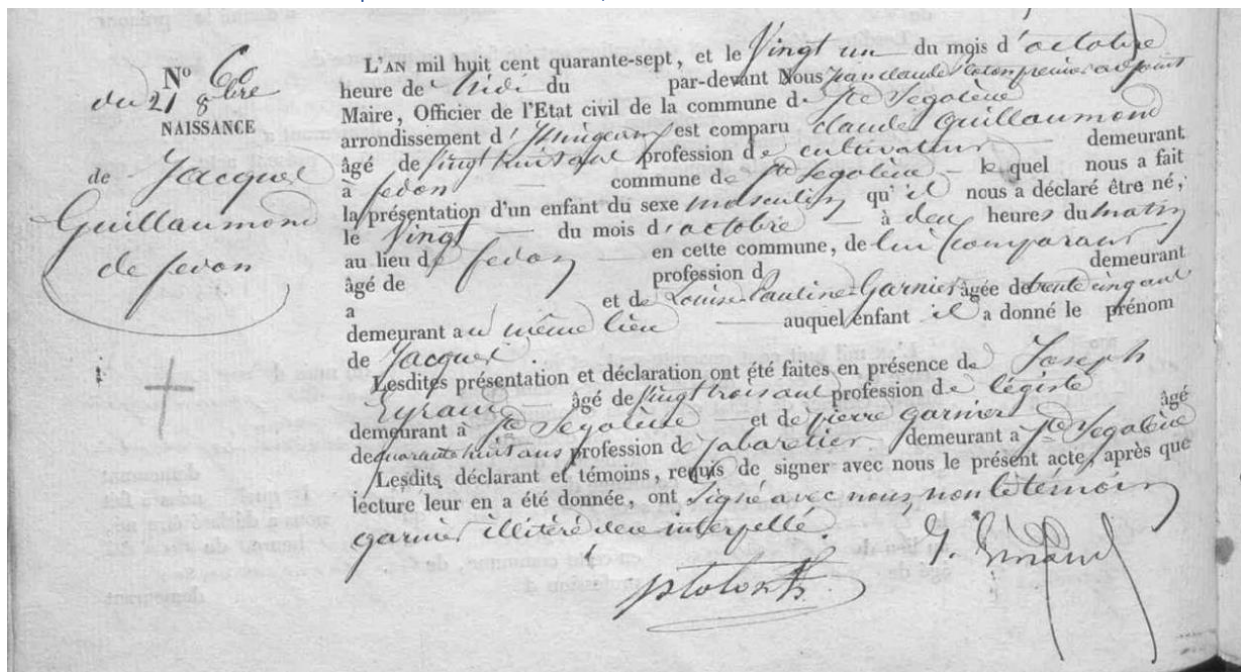 N° 60
du 21 8bre
NAISSANCE
de Jacques
Guillaumond
de fedon
L'AN mil huit cent quarante-sept, et le Vingt un du mois d'octobre
heure de Midi du par-devant Nous jean claude Colon premier adjoint
Maire, Officier de l'Etat civil de la commune de Ste Segolène
arrondissement d'Yssingeaux est comparu claude Guillaumond
âgé de vingt huit ans profession de cultivateur demeurant
à fedon commune de Ste Segolène lequel nous a fait
la présentation d'un enfant du sexe masculin qu'il nous a déclaré être né,
le Vingt du mois d'octobre à deux heures du matin
au lieu de fedon en cette commune, de lui comparant
âgé de profession d demeurant
a et de Louise Pauline Garnier âgée de trente cinq ans
demeurant au même lieu auquel enfant il a donné le prénom
de Jacques.
Lesdites présentation et déclaration ont été faites en présence de Joseph
Eyraud âgé de vingt trois ans profession de légiste
demeurant à Ste Segolène et de pierre garnier âgé
de quarante huit ans profession de cabaretier demeurant a Ste Segolène
Lesdits déclarant et témoins, requis de signer avec nous le présent acte, après que
lecture leur en a été donnée, ont signé avec nous, non le témoin
garnier illitéré de ce interpellé.